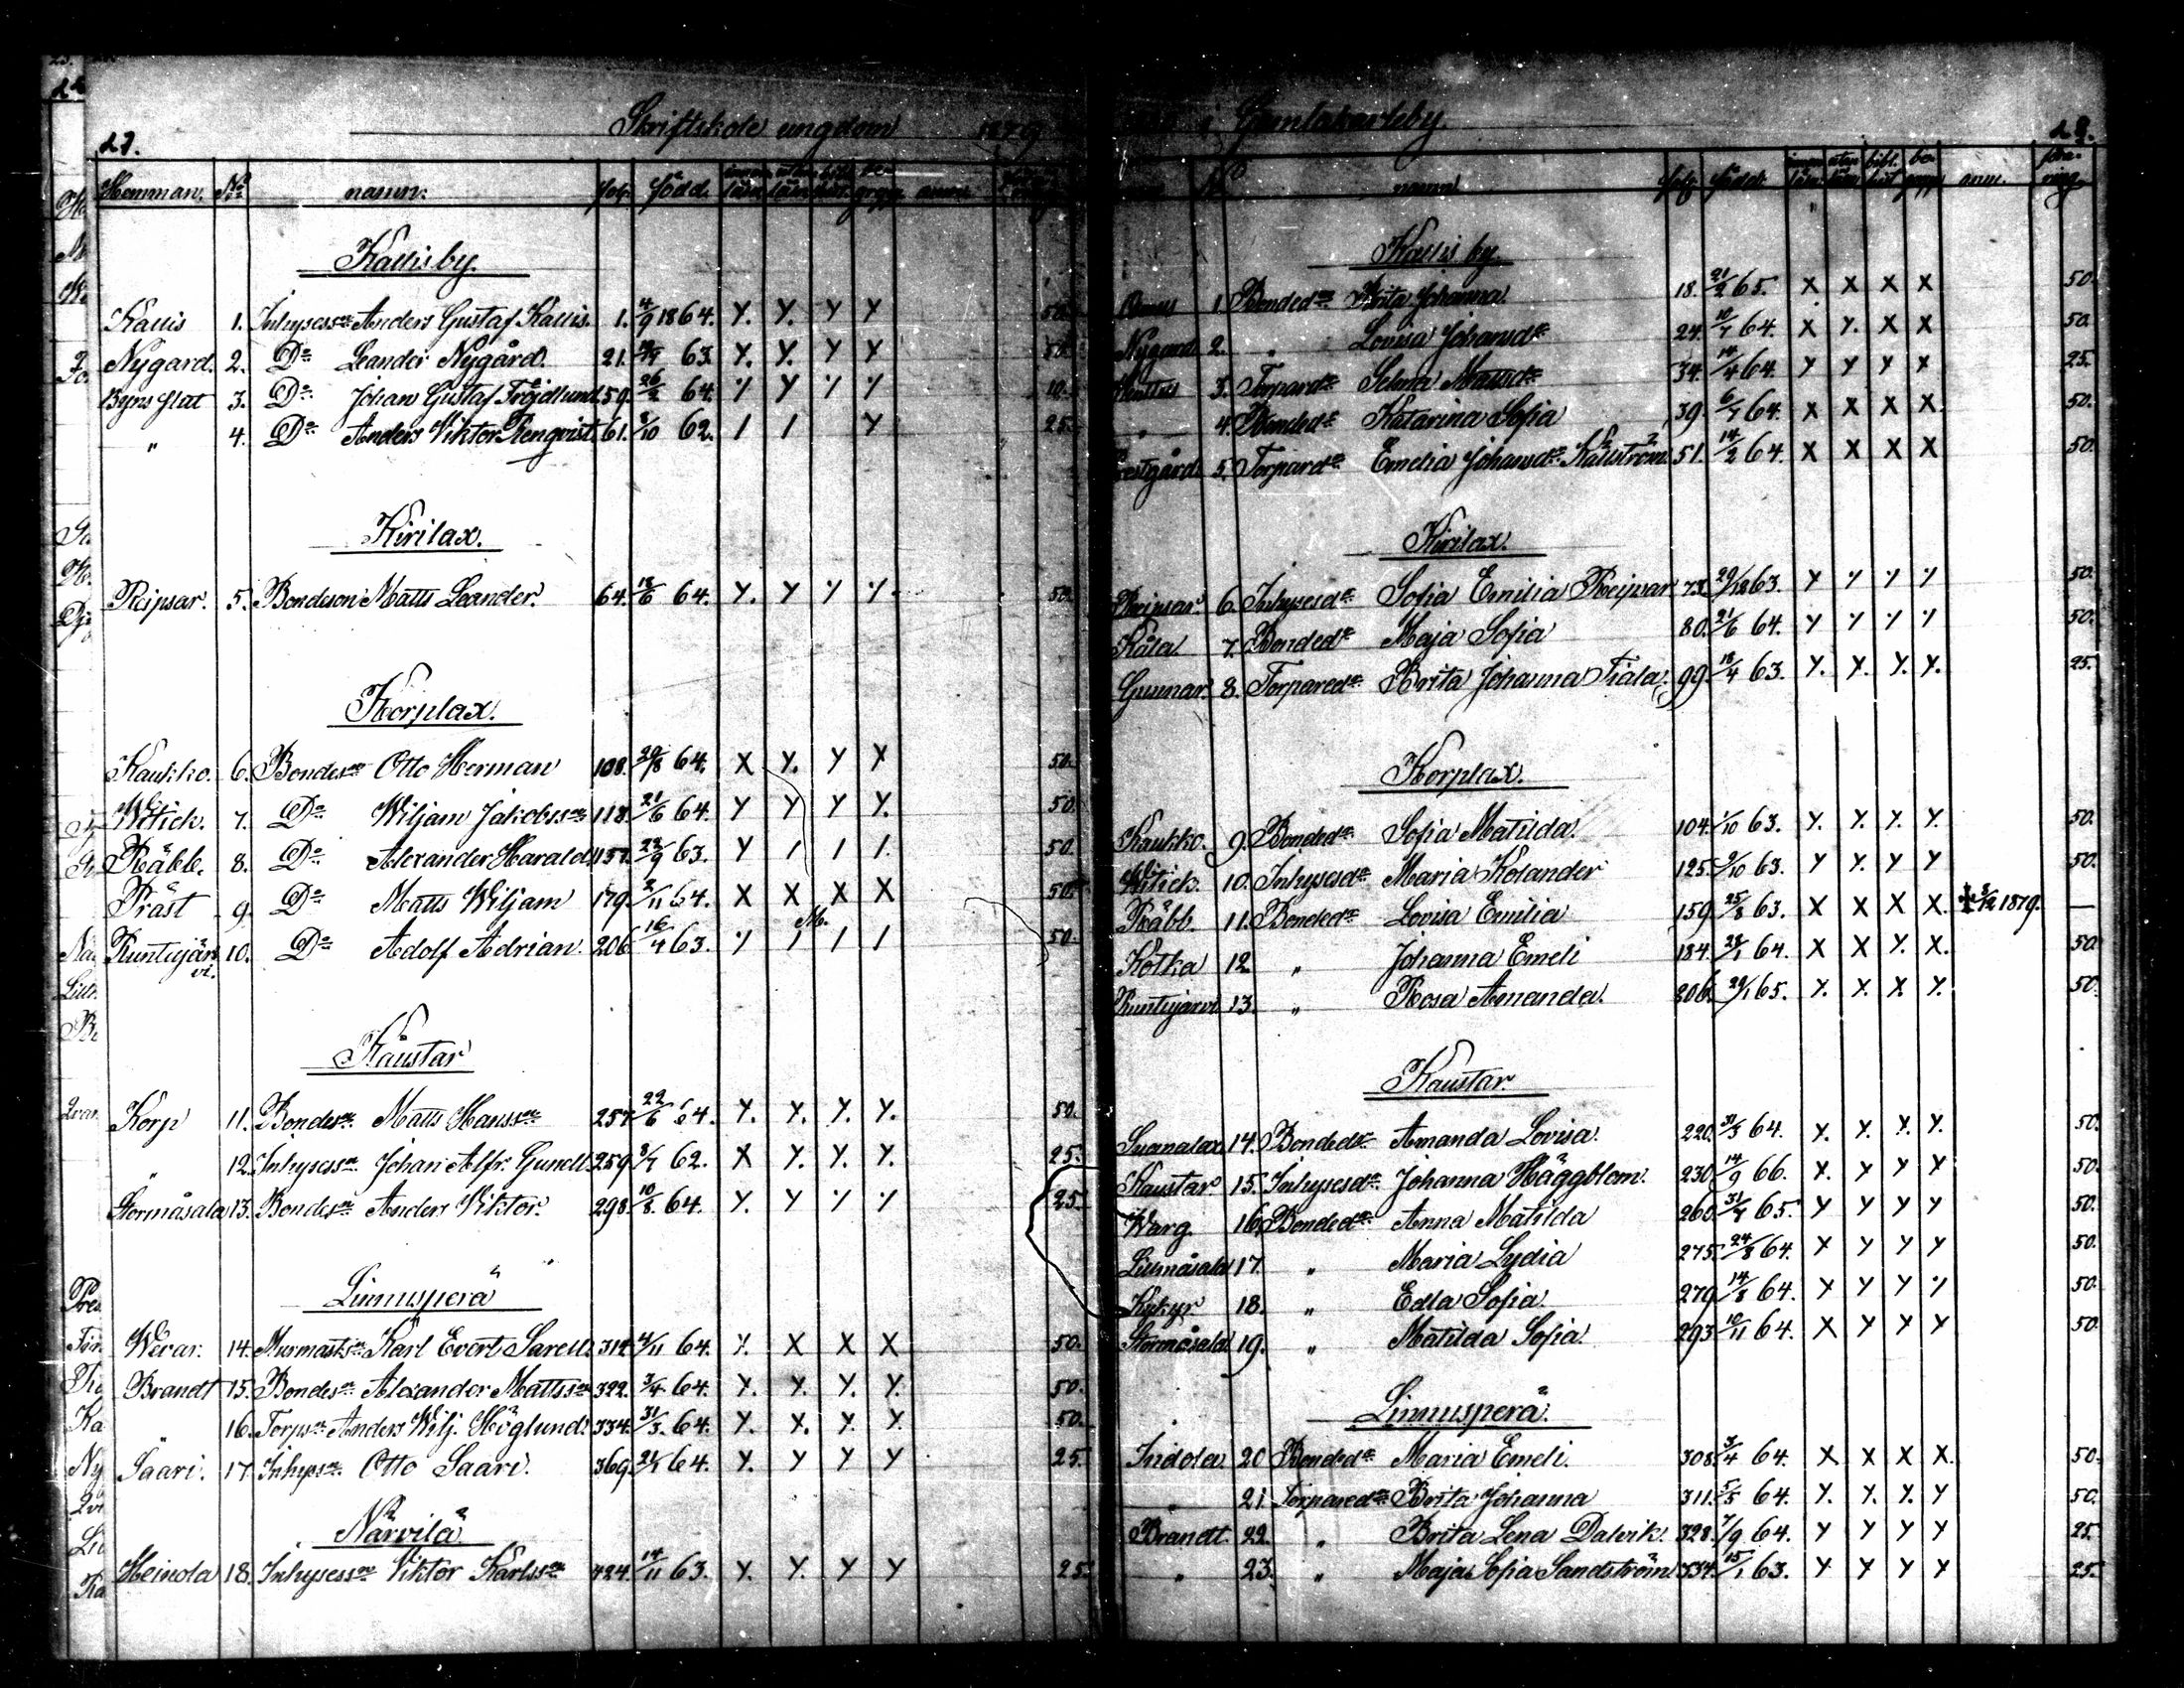 27.
Skriftskole ungdom 1879
Hemman. No namn. pag. född. innan läsn. utan läsn. bibl. hist. be-grepp. anm.
Kallis by.
Kallis 1. Inhysessn Anders Gustaf Kallis. 1. 4/9 1864. Y. Y. Y Y 50.
Nygård. 2. Do Leander Nygård. 21. 63. Y. Y. Y Y 50.
Byns flut 3. Do Johan Gustaf Fröjdlund. 59. 26/2 64. 10.
" 4. Do Anders Viktor Renqvist. 61. 8/10 62. / / Y 25.
Kirilax.
Reipsar. 5. Bondeson Matts Leander. 64. 18/6 64. Y. Y Y Y 50.
Korplax.
Kaukko. 6. Bondesn Otto Herman 108. 29/8 64. X Y. Y X 50.
Witick. 7. Do Wiljam Jakobssn 118. 21/6 64. Y Y Y Y. 50.
Räbb. 8. Do Alexander Harald. 157. 22/9 63. Y / / /. 50.
Präst 9. Do Matts Wiljam 179. 2/11 64. X X X X 50.
Runtujärvi. 10. Do Adolf Adrian. 206 16/4 63. M. 50.
Kaustar
Korp 11. Bondesn. Matts Hanssn 257. 22/6 64. Y. Y. Y. Y. 50.
" 12. Inhysessn. Johan Alfr. Gundl. 259. 8/7 62. X Y. Y. Y. 25.
Stormåsala 13. Bondesn Anders Viktor. 298. 10/8 64. Y. Y Y Y 25.
Linnusperä
Werar. 14. Murmastsn Karl Evert Sarell. 314. 4/11 64. Y. X X X 50.
Brandt 15. Bondesn Alexander Mattssn 322. 3/4 64. Y. Y. Y. Y. 50.
16. Torpsn Anders Wilj. Höglund. 334. 31/3 64. Y. X. Y. Y. 50.
Saari. 17. Inhyssn. Otto Saari. 369. 64. Y. Y Y Y 25.
Närvilä
Heinola 18. Inhysessn Viktor Karlssn 424. 14/11 63. Y. Y. Y Y 25.
i Gamlakarleby.
28.
No namn pag. född. innan läsn. utan läsn. bibl. hist. be-grepp anm.
Kallis by.
1. Bondedr Brita Johanna. 18. 21/2 65. X X X X 50.
Nygård 2. " Lovisa Johansdr 24. 10/7 64. X Y. X X 50.
3. Torpardr Selma Mattsdr 34. 14/4 64. Y Y Y X 25.
" 4. Bondedr Katarina Sofia 39. 6/7 64. X X X X. 50.
Prestgård 5. Torpardr Emelia Johansdr Källström. 51. 14/2 64. X X X X 50.
Kirilax.
Reipsar. 6. Inhysesdr Sofia Emilia Reipsar 73. 63. Y Y Y Y 50.
Kåla 7. Bondedr Maja Sofia 80. 21/6 64. Y Y Y Y 50.
Gunnar. 8. Torparedr Brita Johanna Fiala. 99. 18/4 63. Y. Y. Y. Y. 25.
Korplax.
Kaukko. 9. Bondedr Sofia Matilda. 104. 1/10 63. Y. Y. Y. Y. 50.
Witick. 10. Inhysesdr Maria Kolander 125. 9/10 63. Y Y. Y. Y 50.
Räbb. 11. Bondedr Lovisa Emilia 159. 25/8 63. X X X X. † 3/12 1879. —
Kotka 12. " Johanna Emeli 184. 28/1 64. X X Y. X. 50.
Runtujärvi 13. " Rosa Amanda. 206. 29/1 65. Y. Y. X. Y. 50.
Kaustar.
Suanalax 14. Bondedr. Amanda Lovisa. 220. 31/3 64. Y. Y. Y. Y. 50.
Kaustar. 15. Inhysesdr. Johanna Häggblom. 230. 14/9 66. Y. Y Y Y 50.
Warg. 16. Bondedr. Anna Matilda 260. 31/7 65. Y Y Y Y 50.
Lillmåsala 17. " Maria Lydia 275. 24/8 64. Y Y Y Y 50.
Kykyr. 18. " Edla Sofia. 279. 14/8 64. Y Y Y Y 50.
Stormåsala. 19. " Matilda Sofia. 293. 10/11 64. X Y Y Y 50.
Linnusperä.
Indola. 20 Bondedr Maria Emeli. 308. 3/4 64. X X X X. 50.
" 21. Torparedr. Brita Johanna 311. 5/5 64. Y. Y. Y. Y 50.
Brandt. 22. " Brita Lena Dalvik. 328. 7/9 64. Y Y Y Y 25.
" 23. " Maja Sofia Sandström. 334. 15/1 63. Y Y Y Y 25.